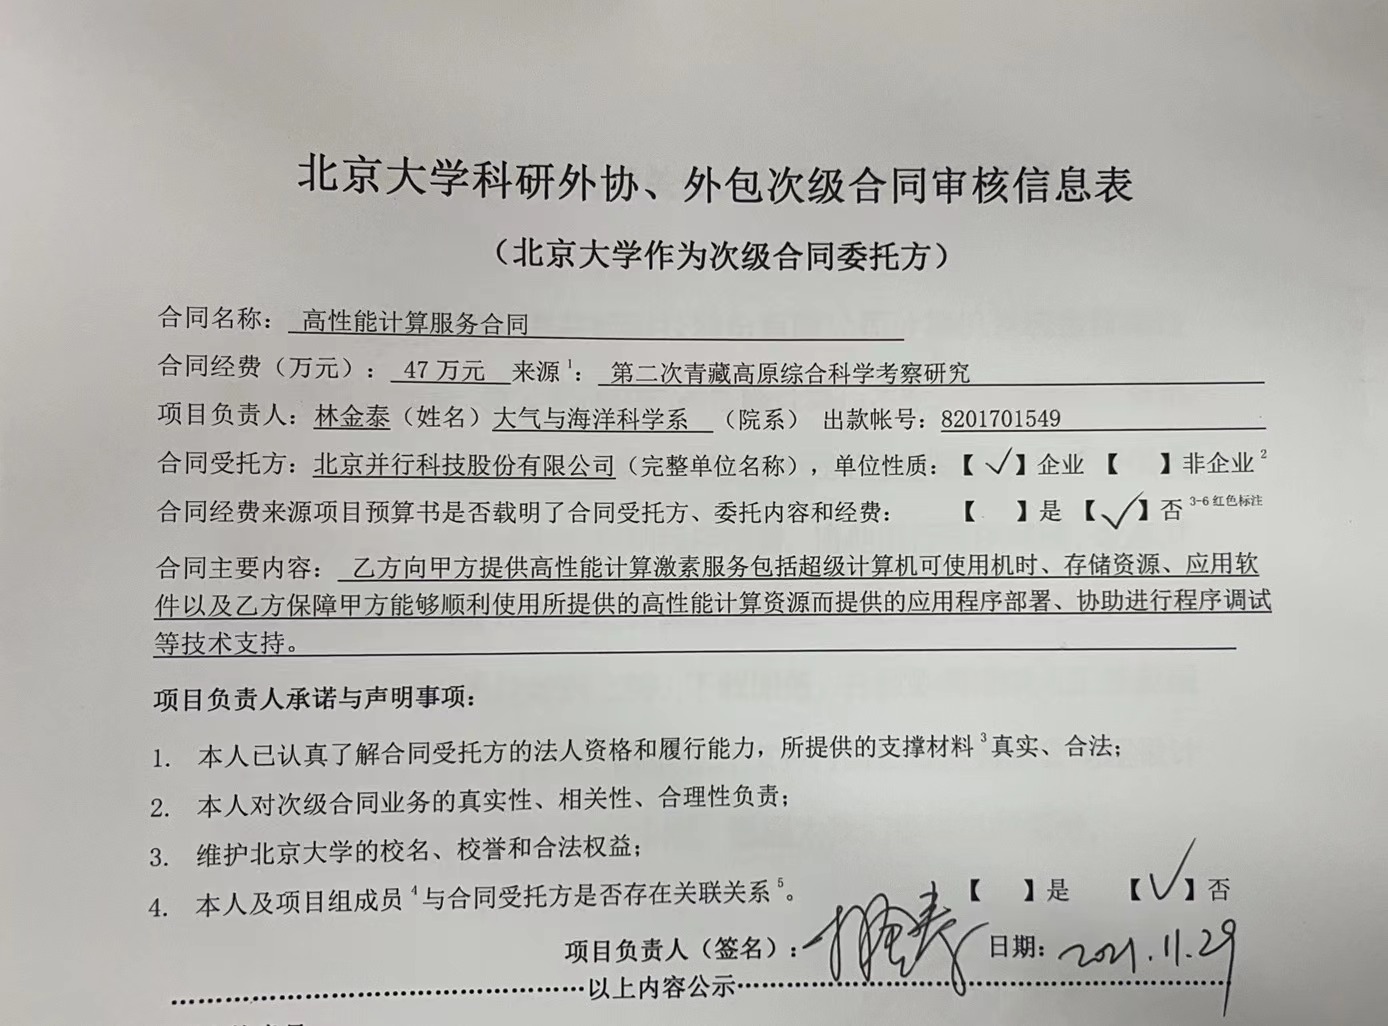 北京大学科研外协、外包次级合同审核信息表
（北京大学作为次级合同委托方）
合同名称： 高性能计算服务合同
合同经费（万元）： 47 万元 来源1： 第二次青藏高原综合科学考察研究
项目负责人：林金泰（姓名）大气与海洋科学系 （院系） 出款帐号：8201701549
合同受托方：北京并行科技股份有限公司（完整单位名称），单位性质：【 ✓】企业 【 】非企业2
合同经费来源项目预算书是否载明了合同受托方、委托内容和经费： 【 】是 【✓】否 3-6 红色标注
合同主要内容： 乙方向甲方提供高性能计算激素服务包括超级计算机可使用机时、存储资源、应用软
件以及乙方保障甲方能够顺利使用所提供的高性能计算资源而提供的应用程序部署、协助进行程序调试
等技术支持。
项目负责人承诺与声明事项：
1. 本人已认真了解合同受托方的法人资格和履行能力，所提供的支撑材料3真实、合法；
2. 本人对次级合同业务的真实性、相关性、合理性负责；
3. 维护北京大学的校名、校誉和合法权益；
4. 本人及项目组成员4与合同受托方是否存在关联关系5。 【 】是 【✓】否
项目负责人（签名）：林金泰 日期：2021.11.29
以上内容公示